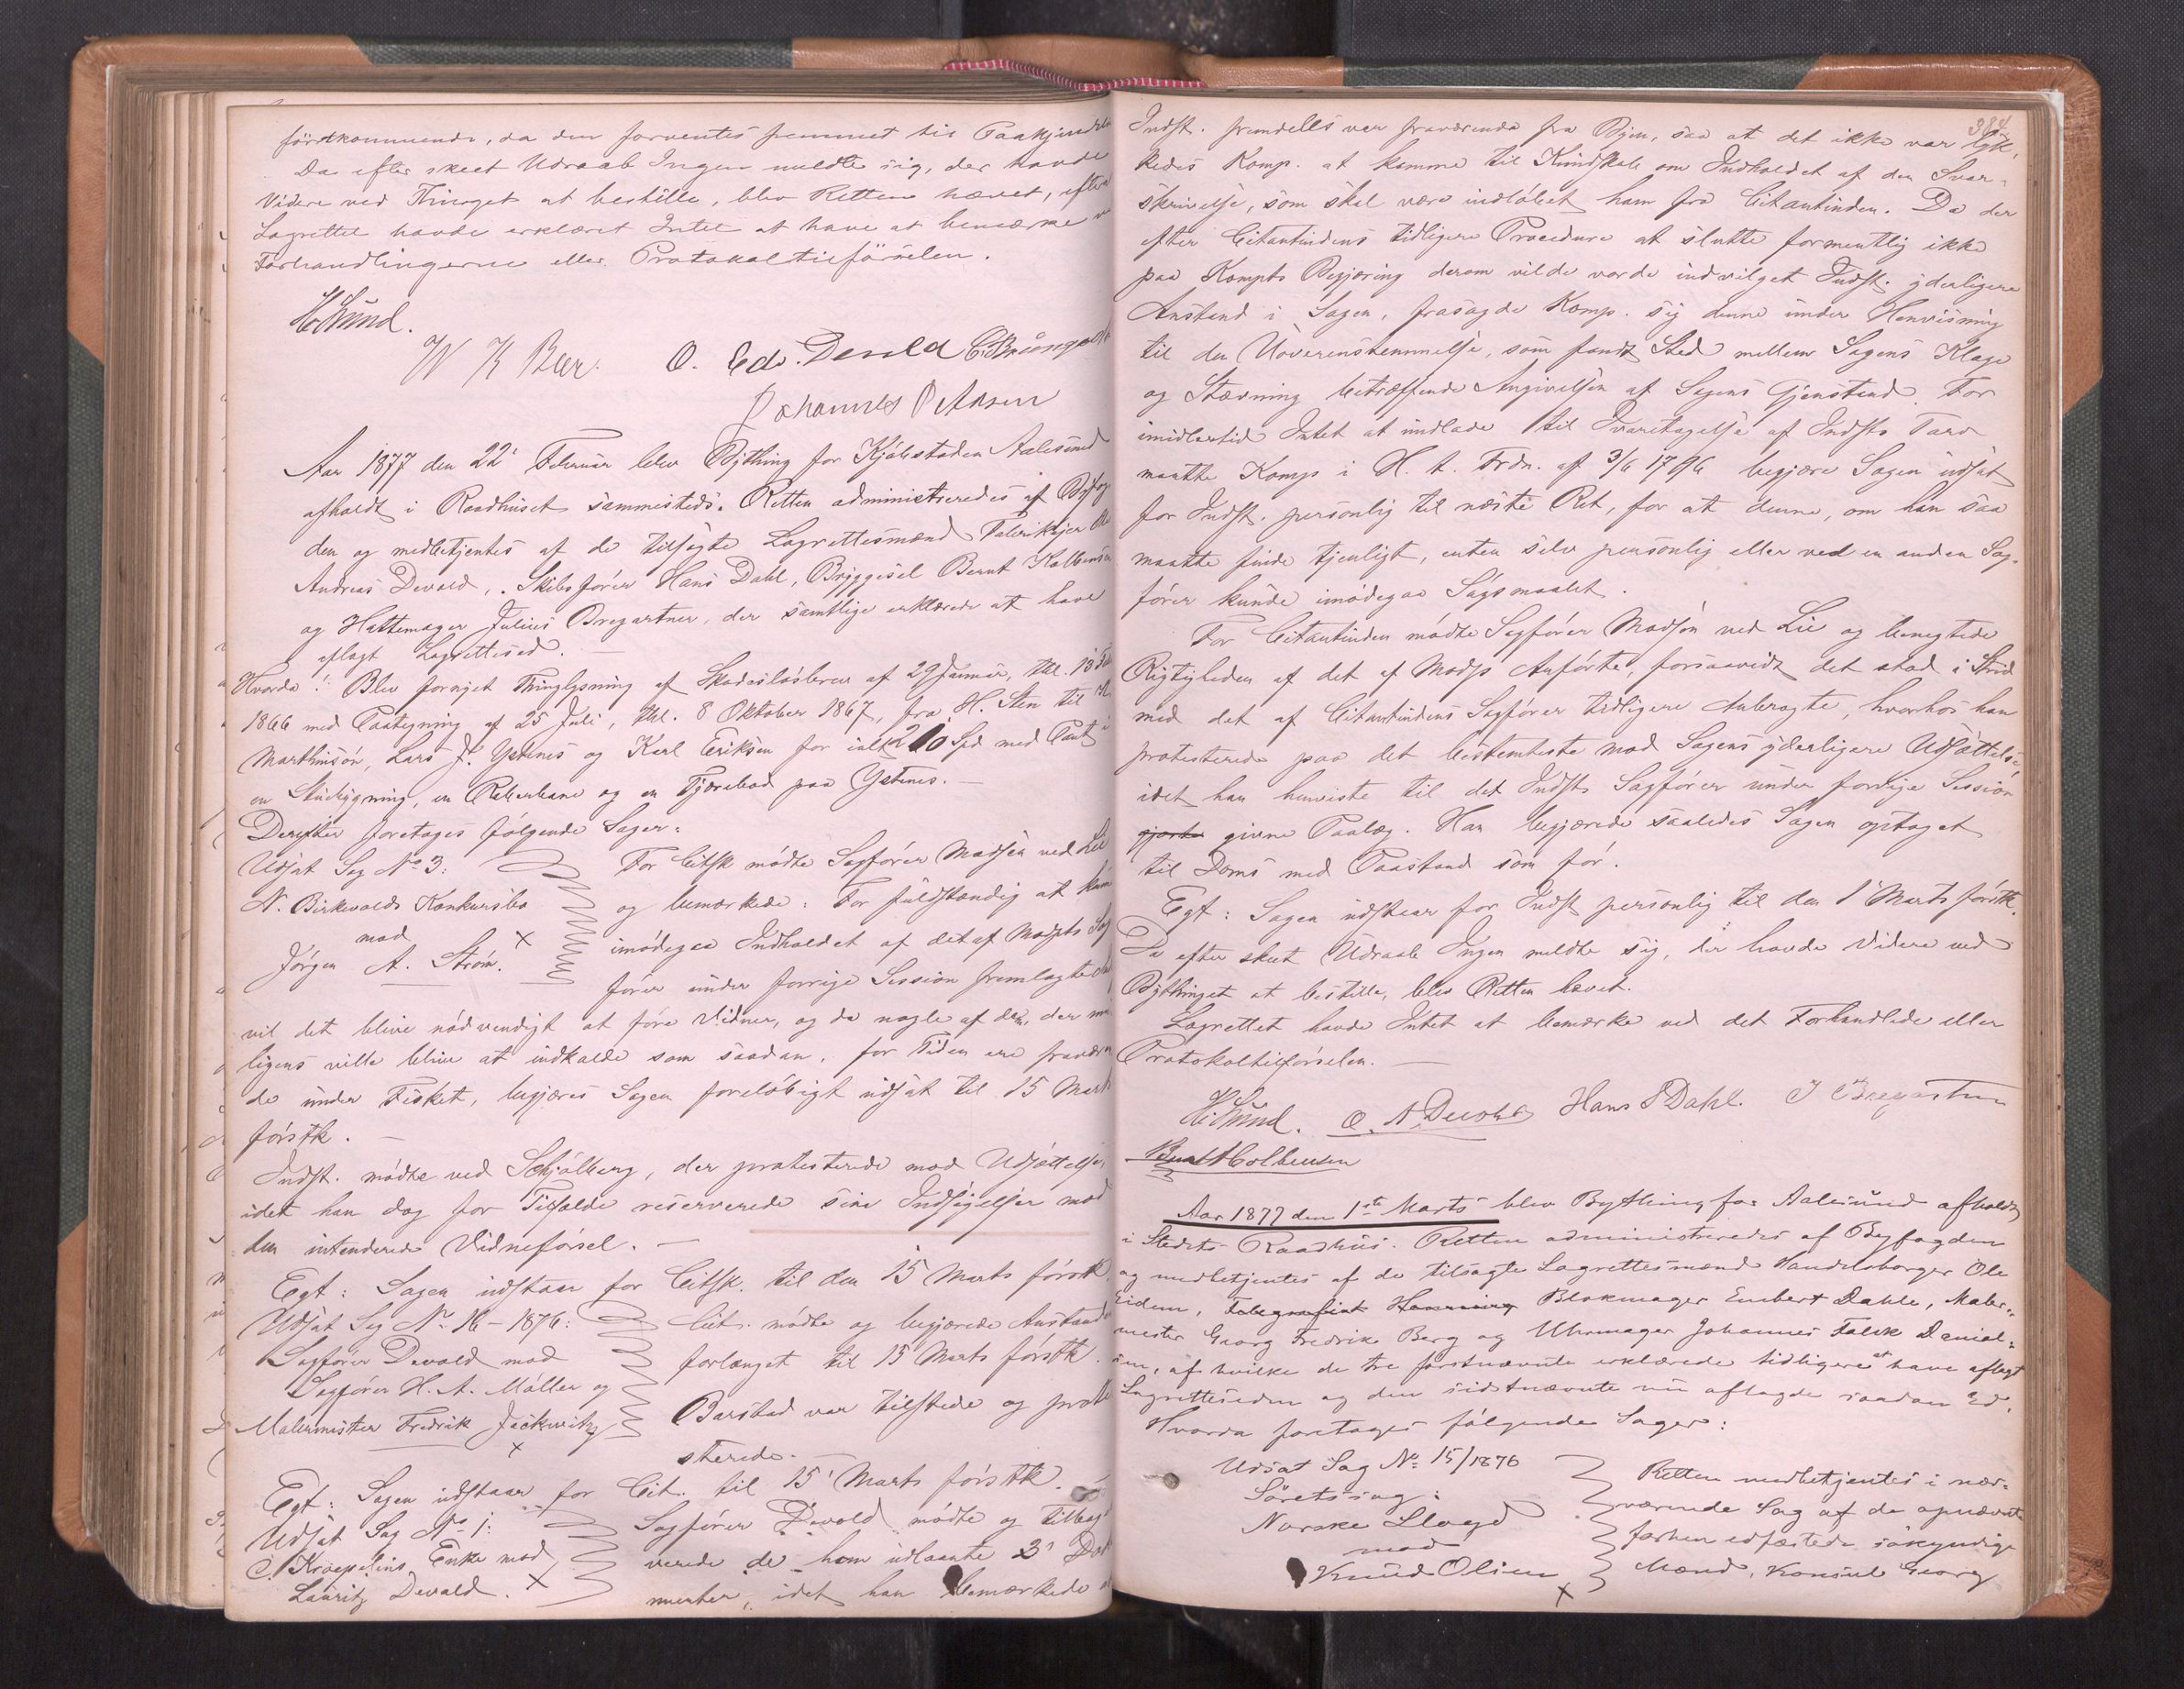 förstkommende, da den forventes fremmet til Paakjendelse
Da efter skeet Udraab Ingen meldte sig, der havde
Videre ved Thinget at bestille, blev Retten hævet, efter
Lagrettet havde erklæret Intet at have at bemærke
Forhandlingerne eller Protokoltilförselen.
O. Edv. Devold
Johannes
Aar 1877 den 22' Februar blev Bything for Kjöbstaden Aalesund
afholdt i Raadhuset sammesteds. Retten administreredes af Byfog
den og medbetjentes af de tilsagte Lagrettesmænd Fabrikejer
Andreas Devold, Skibsförer Hans Dahl, Bryggesel Bernt Kolbensen
og Hattemager Julius Bregartner, der samtlige erklærede at have
aflagt Lagrettesed.
Hvorda: Blev fornyet Thinglysning af Skadeslösbrev af 29 Januar, thl. 15
1866 med Paategning af 25 Juli, thl. 8 Oktober 1867, fra H. Sten til
Marthinsön, Lars J. Ystenes og Karl Eriksen for ialt 210 Spd med Pant i
en Stuebygning, en Reberbane og en Tjærebod paa Ystenes.
Derefter foretages følgende Sager:
Udsat Sag No 3:
N. Birkevolds Konkursbo
mod
Jörgen A. Ström.
x
For Citsk. mödte Sagförer Madsen ved Lie
og bemærkede: For fuldstændig at kunne
imödegaa Indholdet af det af Modpts Sag
förer under forrige Session fremlagte
vil det blive nödvendigt at före Vidner, og da nogle af dem, der
ligens ville blive at indkalde som saadan, for Tiden ere fraværen
de under Fisket, begjæres Sagen foreløbigt udsat til 15 Marts
förstk.
Indst. mödte ved Schjölberg, der protesterede mod Udsættelsen
idet han dog for Tilfælde reserverede sine Indsigelser mod
den intenderede Vidneförsel.
Egt: Sagen udstaar for Citsk. til den 15 Marts förstk.
Udsat Sag No 16 - 1876:
Sagförer Devold mod
Sagförer H. A. Möller og
Malermester Fredrik Jackwitz
x
Cit. mödte og begjærede Anstanden
forlænget til 15 Marts förstk.
Barstad var tilstede og prote
sterede.
Egt: Sagen udstaar for Cit. til 15' Marts förstk.
Udsat Sag No 1:
C. Kroepeliens Enke mod
Lauritz Devold.
x
Sagförer Devold mödte og tilbage
verede de ham udlaante 3' Doku
menter, idet han bemærkede at
384
Indst. fremdeles var fraværende fra Byen, saa at det ikke var lyk,
kedes Komp. at komme til Kundskab om Indholdet af den Svar-
skrivelse, som skal være indlöbet ham fra Citantinden. Da der
efter Citantindens tidligere Procedure at slutte formentlig ikke
paa Kompts Begjæring derom vilde vorde indvilget Indst. yderligere
Anstand i Sagen, frasagde Komp. sig denne under Henvisning
til den Uoverensstemmelse, som fandt Sted mellem Sagens Klage
og Stævning betræffende Angivelsen af Sagens Gjenstand. For
imidlertid Intet at undlade til Ivaretagelse af Indsts Tarv
maatte Komp i H. t. Frdn. af 3/6 1796 begjære Sagen udsat
for Indst. personlig til næste Ret, for at denne, om han saa
maatte finde tjenligt, enten selv personlig eller ved en anden Sag-
förer kunde imödegaa Sögsmaalet.
For Citantinden mödte Sagförer Madsön ved Lie og benegtede
Rigtigheden af det af Modps Anförte, forsaavidt det stod i Strid
med det af Citantindens Sagförer tidligere Anbragte, hvorhos han
protesterede paa det bestemteste mod Sagens yderligere Udsættelse,
idet han henviste til det Indsts Sagförer under forrige Session
gjorte givne Paalæg. Han begjærede saaledes Sagen optaget
til Doms med Paastand som för.
Egt: Sagen udstaar for Indst personlig til den 1' Marts förstk.
Da efter skeet Udraab Ingen meldte sig, der havde Videre ved
Bythinget at bestille, blev Retten hævet.
Lagrettet havde Intet at bemærke ved det Forhandlede eller
Protokoltilförselen.
O. A. Devold Hans Dahl. J Bregartner
Bernt Kolbensen
Aar 1877 den 1ste Marts blev Bything for Aalesund afholdt
i Stedets Raadhus. Retten administreredes af Byfogden
og medbetjentes af de tilsagte Lagrettesmænd Handelsborger Ole
Eidem, Telegrafist Henning Blokmager Embert Dahle, Maler-
mester Georg Fredrik Berg og Uhrmager Johannes Falck Daniel-
sen, af hvilke de tre förstnævnte erklærede tidligere at have aflagt
Lagretteseden og den sidstnævnte nu aflagde saadan Ed.
Hvorda foretages fölgende Sager:
Udsat Sag No 15/1876
Söretssag:
Norske Lloyd
mod
Knud Olsen
x
Retten medbetjentes i nær-
værende Sag af de opnævnte
forhen edfæstede sökyndige
Mænd, Konsul Georg